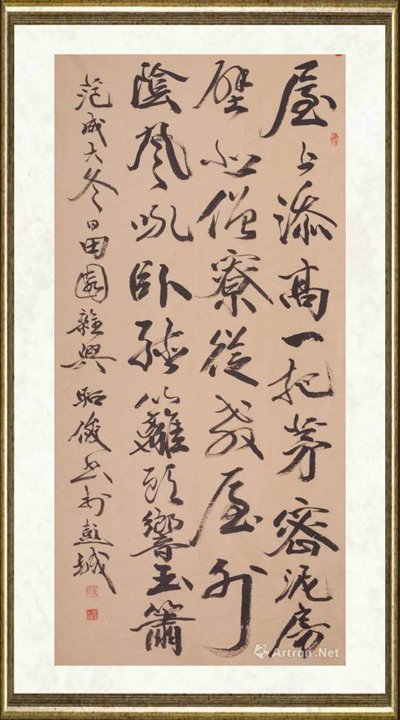 屋上添高一把茅密泥房
壁似僧寮從教屋外
陰風吼臥聽籬頭響玉簫
范成大冬日田園雜興 俊書於城
Artron.Net